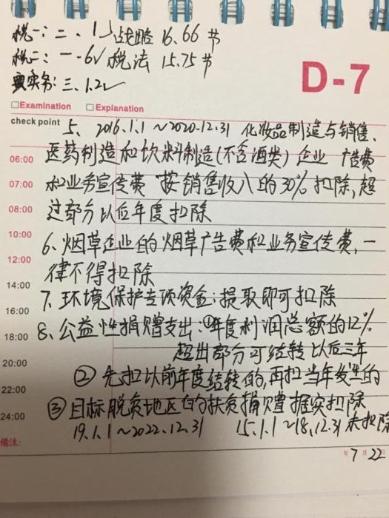 税一: 二、1 战略 16.66 节
税二: 一-6 税法 15.75节
实务: 三、1.2
D-7
Examination Explanation
check point 5、2016.1.1~2020.12.31 化妆品制造与销售、
医药制造和饮料制造(不含酒类)企业 广告费
06:00
07:00 和业务宣传费 按销售收入的30%扣除,超
08:00 过部分以后年度扣除
09:00 6、烟草企业的烟草广告费和业务宣传费,一
12:00 律不得扣除
14:00 7、环境保护专项资金:提取即可扣除
16:00
18:00 8、公益性捐赠支出:①年度利润总额的12%
超出部分可结转以后三年
20:00
22:00 ②先扣以前年度结转的,再扣当年发生的
24:00 ③目标脱贫地区的扶贫捐赠据实扣除
19.1.1~2022.12.31 15.1.1~18.12.31未扣除
备注:
7月22